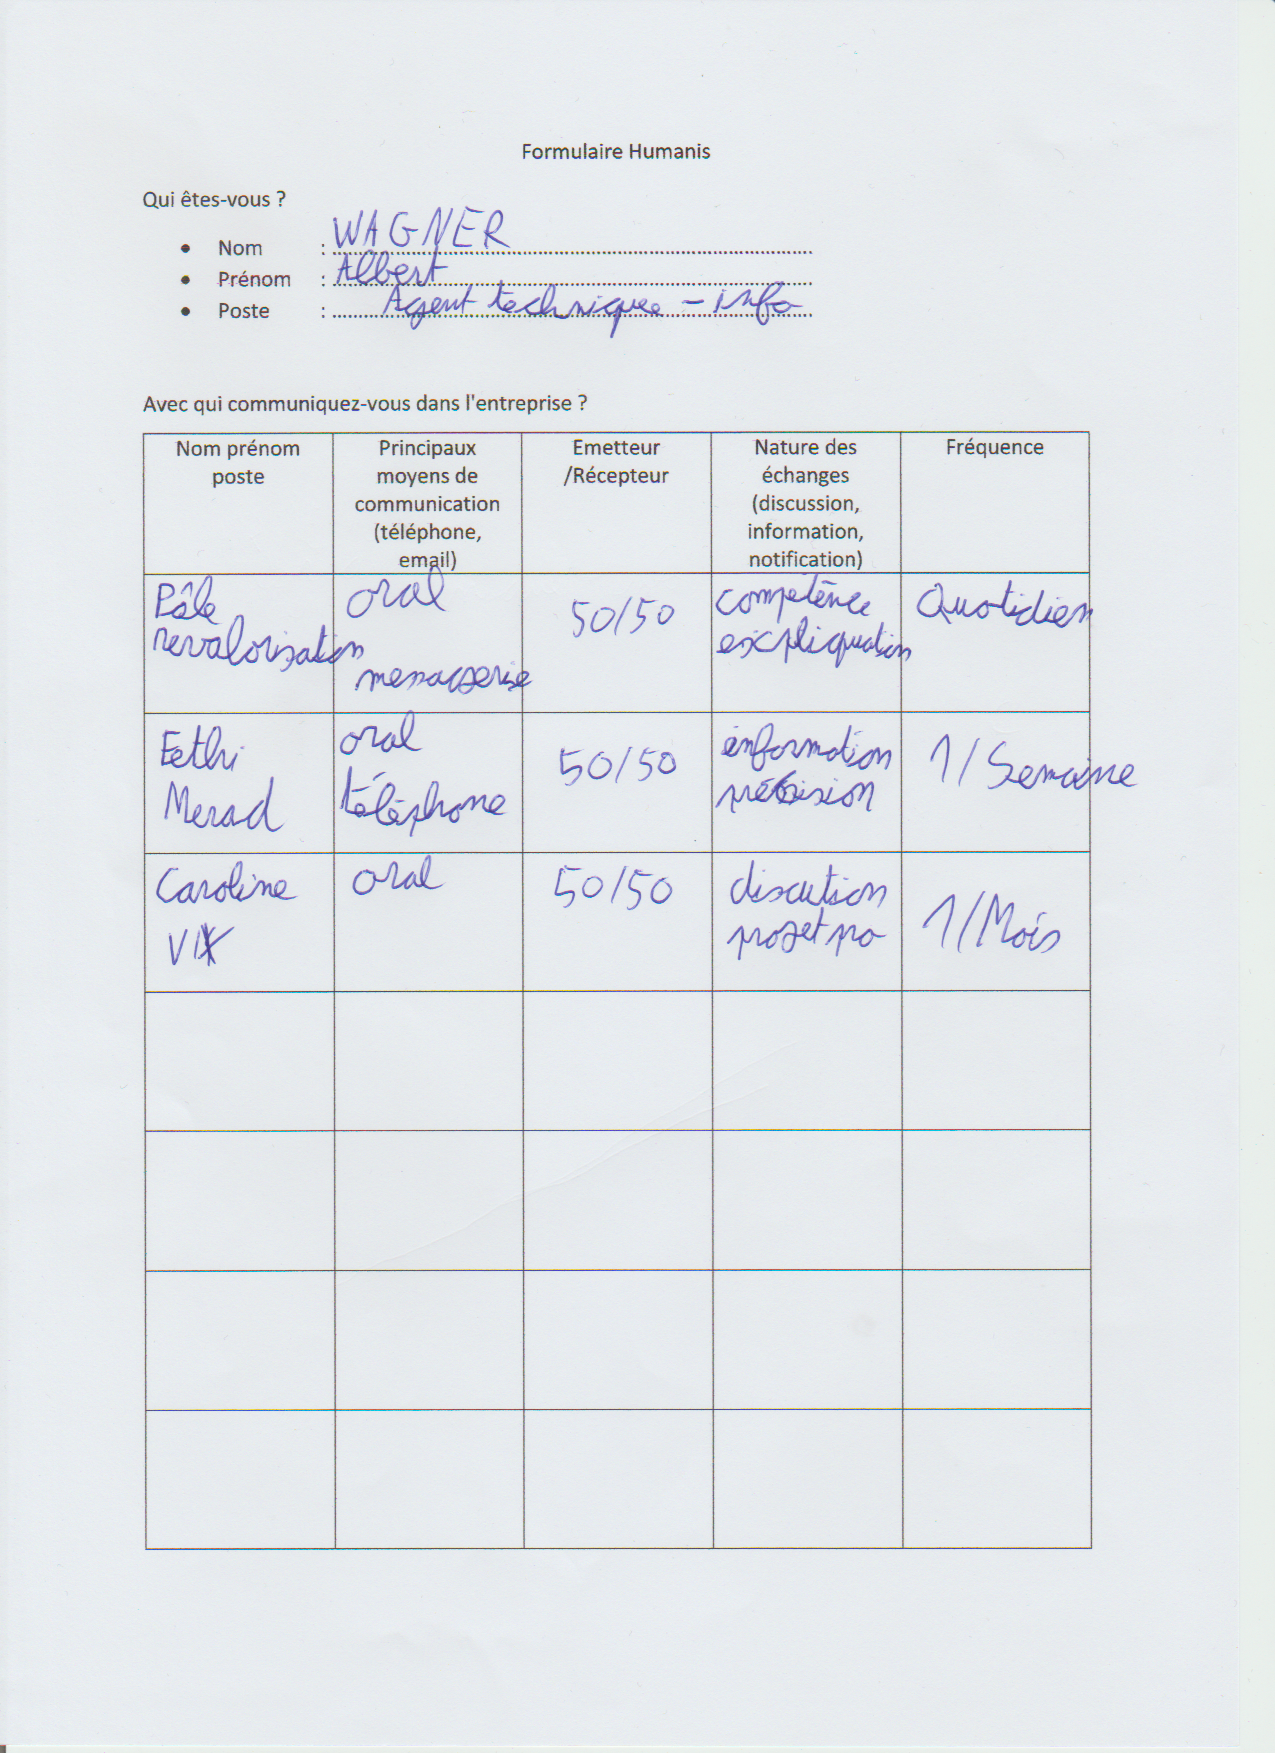 Formulaire Humanis
Qui êtes-vous ?
• Nom : WAGNER
• Prénom : Albert
• Poste : Agent technique - info
Avec qui communiquez-vous dans l'entreprise ?
Nom prénom
poste
Principaux
moyens de
communication
(téléphone,
email)
Emetteur
/Récepteur
Nature des
échanges
(discussion,
information,
notification)
Fréquence
Pôle
revalorisation
oral
messagerie
50/50
compétence
expliquation
Quotidien
Fethi
Merad
oral
téléphone
50/50
information
précision
1/Semaine
Caroline
VIX
oral
50/50
discution
projet pro
1/Mois